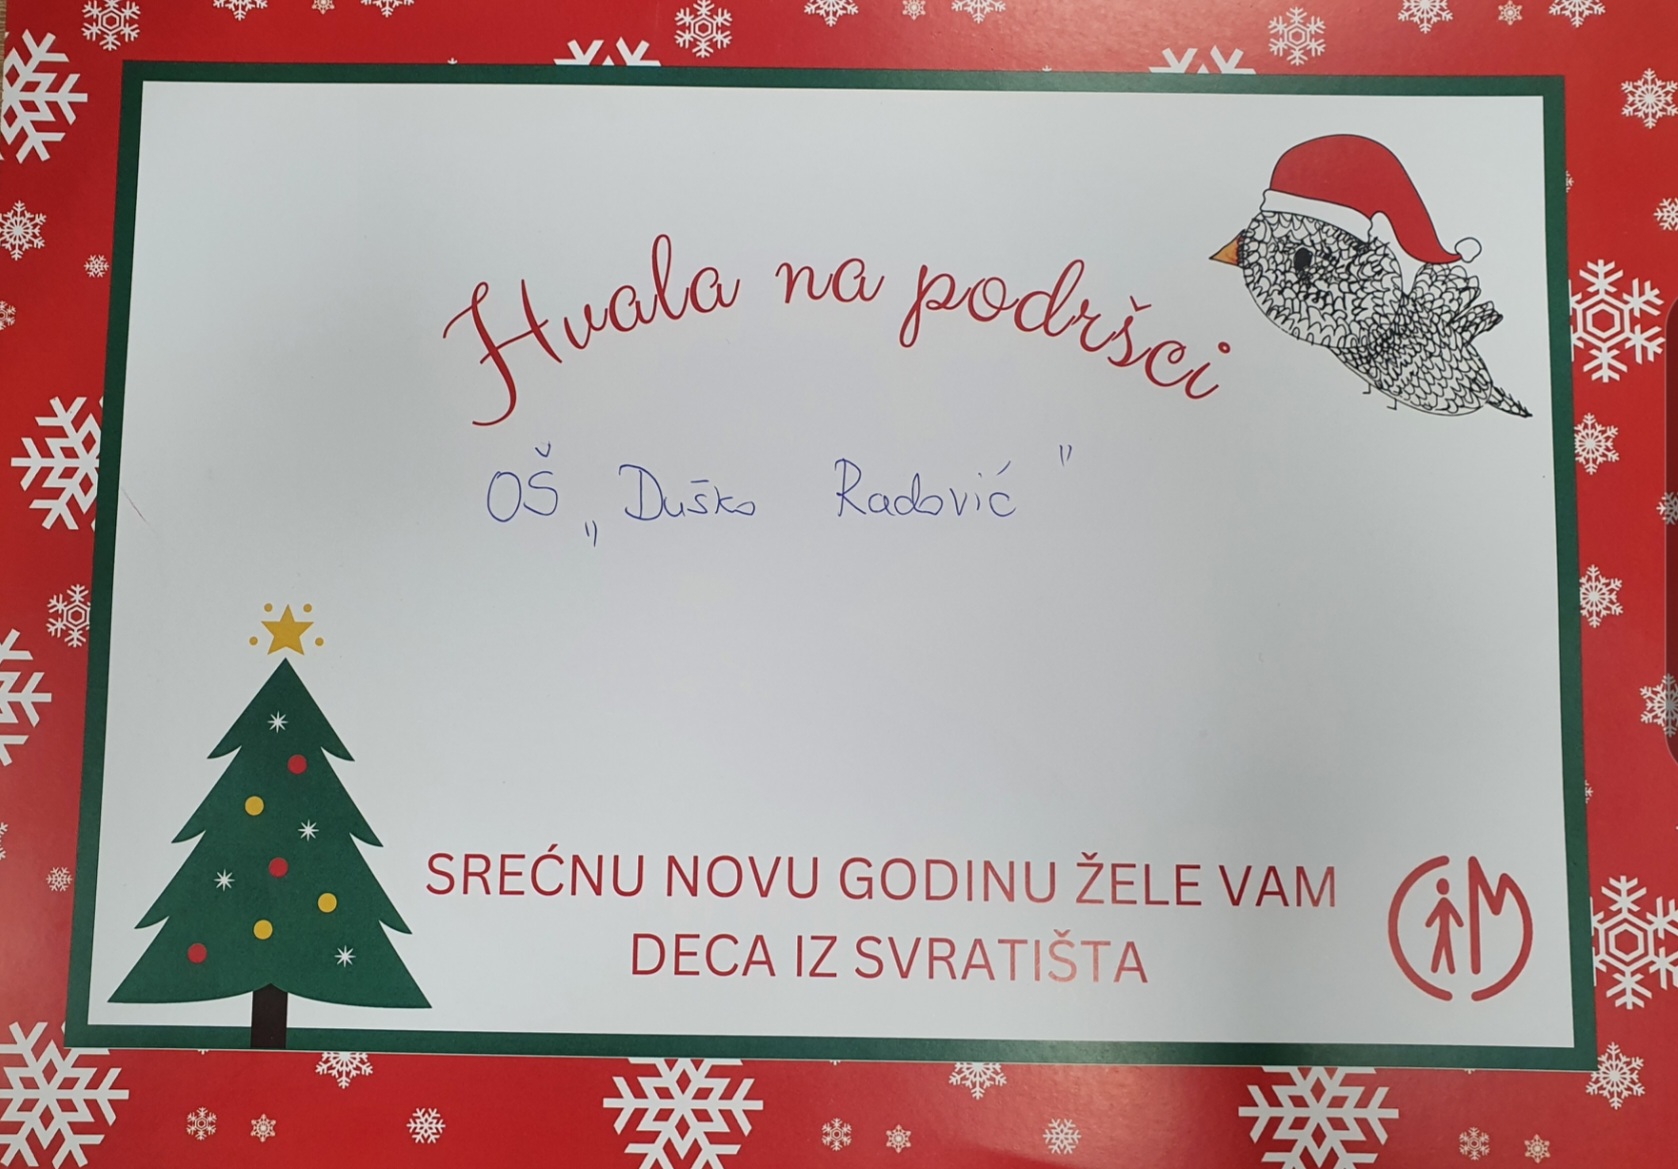 Hvala na podršci
OŠ „Duško Radović"
SREĆNU NOVU GODINU ŽELE VAM
DECA IZ SVRATIŠTA